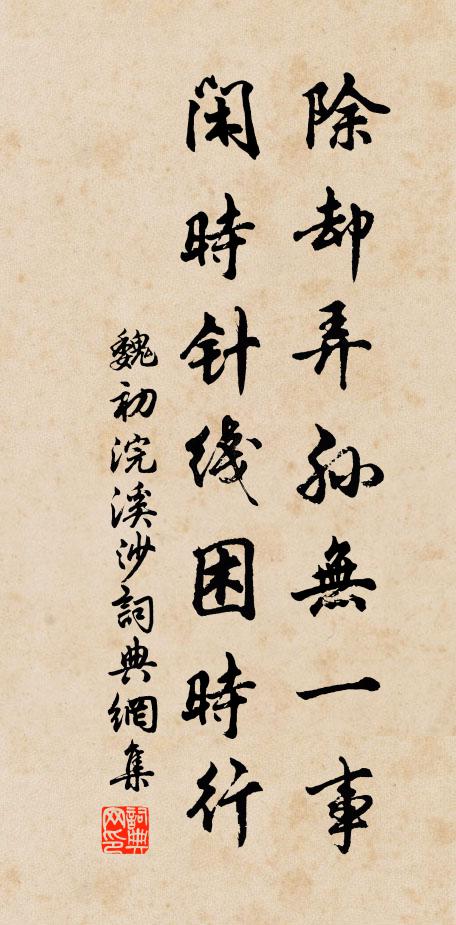 除却弄孙無一事
闲時针线困時行
魏初浣溪沙詞典網集
詞典网印